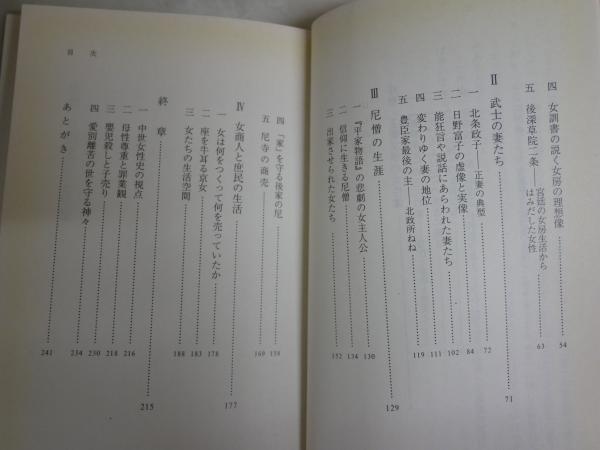 四　女訓書の説く女房の理想像 54
五　後深草院二条——宮廷の女房生活から
はみだした女性 63
Ⅱ　武士の妻たち 71
一　北条政子——正妻の典型 72
二　日野富子の虚像と実像 84
三　能狂言や説話にあらわれた妻たち 102
四　変わりゆく妻の地位 111
五　豊臣家最後の主——北政所ねね 119
Ⅲ　尼僧の生涯 129
一　『平家物語』の悲劇の女主人公 130
二　信仰に生きる尼僧 134
三　出家させられた女たち 152
目次
四　「家」を守る後家の尼 158
五　尼寺の商売 169
Ⅳ　女商人と庶民の生活 177
一　女は何をつくって何を売っていたか 178
二　座を牛耳る京女 183
三　女たちの生活空間 188
終章 215
一　中世女性史の視点 216
二　母性尊重と罪業観 218
三　嬰児殺しと子売り 230
四　愛別離苦の世を守る神々 234
あとがき 241